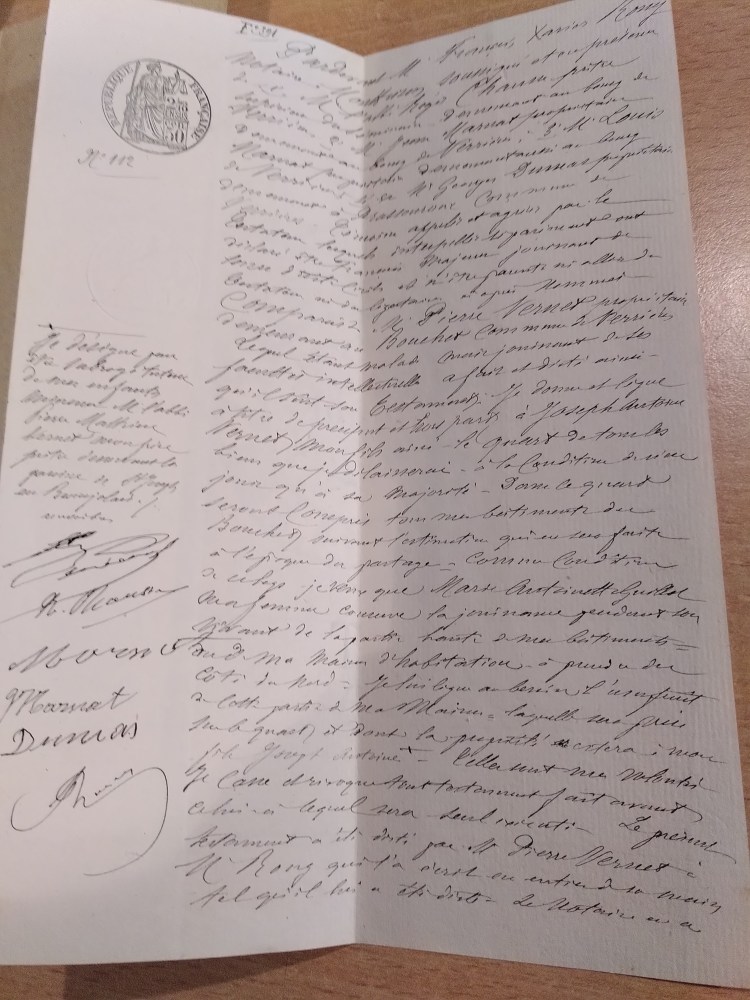 RÉPUBLIQUE FRANÇAISE
N° 112
Pardevant Me François Xavier Rony
Notaire à soussigné et en présence
de 1° M. Régis Chausse prêtre
demeurant au bourg de
Verrières, 2° M. Jean Marnat propriétaire
demeurant au bourg de Verrières, 3° M. Louis
Marnat propriétaire demeurant aussi au bourg
de Verrières, et 4° Mr Georges Dumas propriétaire
demeurant à Commune de
Verrières témoins appelés et agréés par le
testateur lesquels interpellés séparément ont
déclaré être français majeurs jouissant de
leurs droits civils et n'être parents ni alliés du
testateur ni du légataire ci après nommé
Comparaît Mr Pierre Vernet propriétaire
demeurant au Bouchet Commune de Verrières
Lequel étant malade mais jouissant de ses
facultés intellectuelles a fait et dicté ainsi
qu'il suit son testament. Je donne et lègue
à titre de preciput et hors part à Joseph Antoine
Vernet mon fils ainé - le quart de tous les
biens que je délaisserai - à la Condition de
jouir qu'à sa majorité - Dans ce quart
seront Compris tous mes bâtiments du
Bouchet suivant l'estimation qui en sera faite
à l'époque du partage - comme Condition
de ce legs je veux que Marie Antoinette
ma femme conserve la jouissance pendant son
vivant de la partie haute de mes bâtiments =
ou de ma maison d'habitation - à prendre du
côté du Nord = Je lui lègue au besoin l'usufruit
de cette partie de ma Maison - laquelle sera prise
sur le quart et dont la propriété restera à mon
fils Joseph Antoine + - Telles sont mes volontés
Je Casse et révoque tout testament fait avant
celui-ci lequel sera seul exécuté - Le présent
testament a été dicté par Mr Pierre Vernet à
Me Rony qui l'a écrit en entier de sa main
tel qu'il lui a été dicté - Le Notaire en a
+ Je désigne pour
être subrogé tuteur
de mes enfants
mineurs M. l'abbé
Pierre Mathieu
Vernet mon frère
prêtre demeurant à
paroisse de
en Beaujolais /.
R. Chausse
Marnat
Marnat
Dumas
Rony